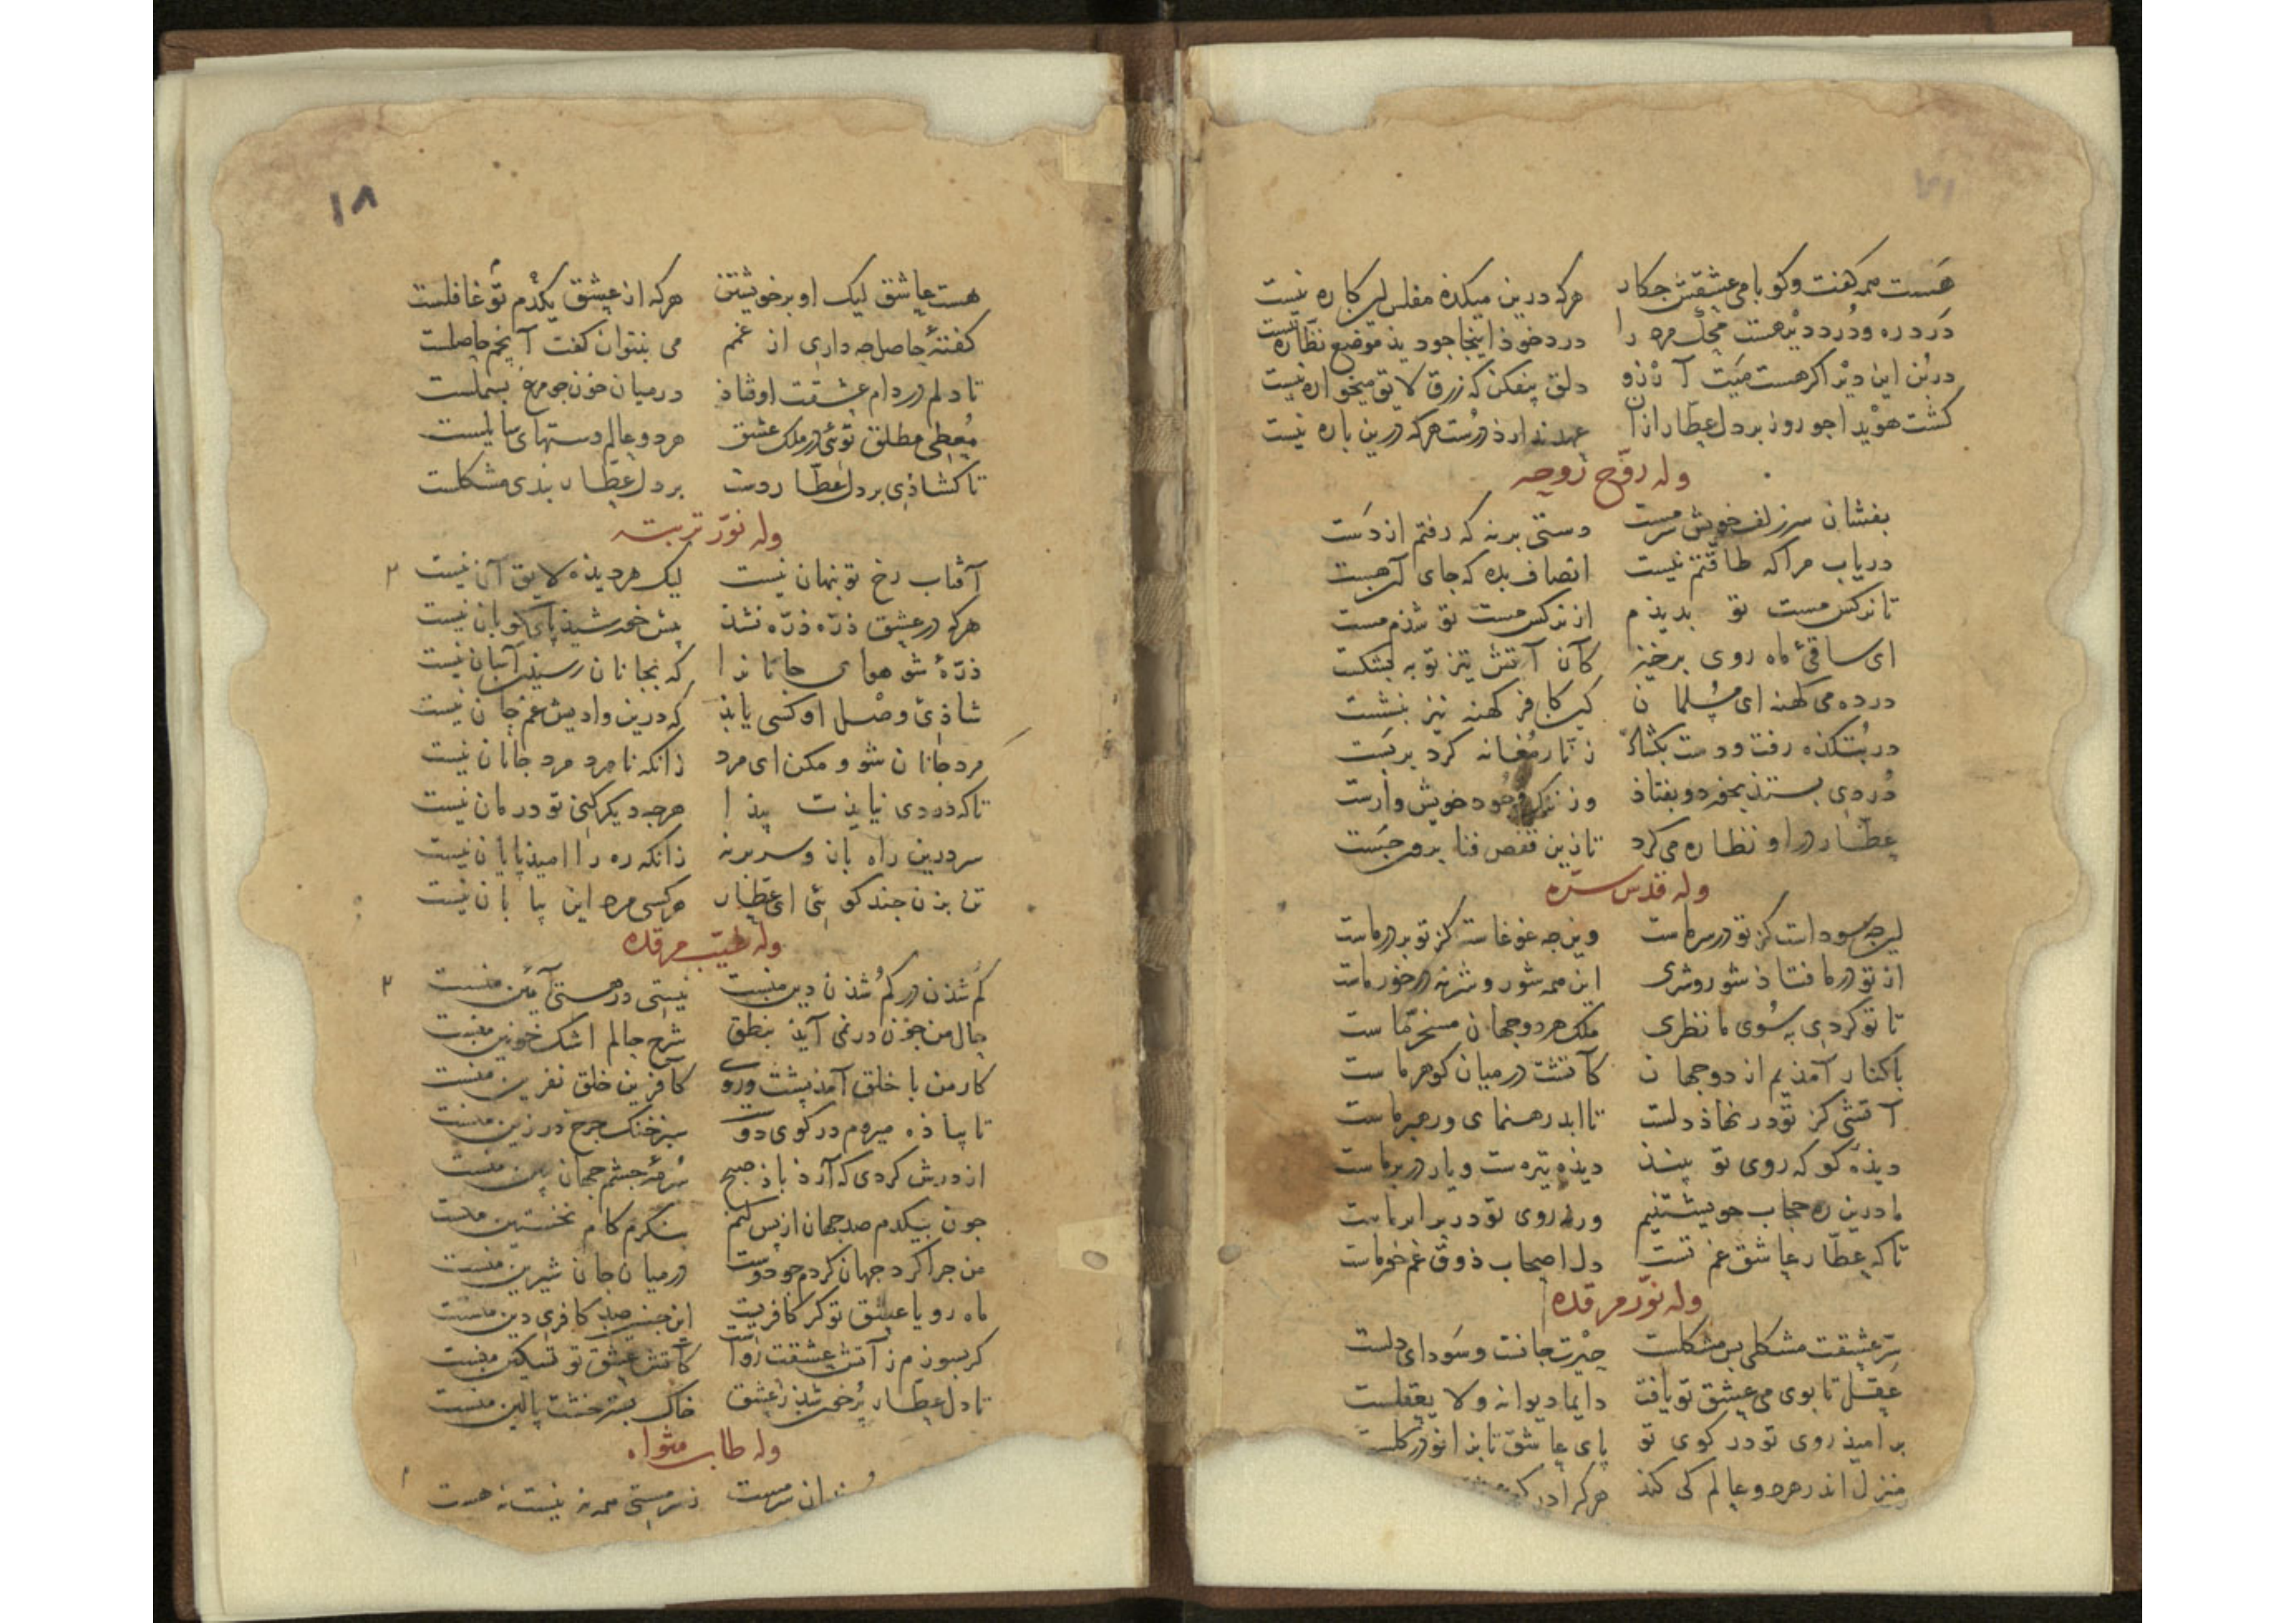 هست همه گفت و گو با می عشقش جکار هرکه درین میکده مفلس این کاره نیست
درد ره و درد دیر هست محک مرد را درد خوذ اینجا جو دیذ موضع نظاره نیست
در بن این دیر اگر هست میت آرزو دلق بیفکن که زرق لایق میخواره نیست
گشت هویدا جو روز بر دل عطار ازآن عهد ندارذ درست هرکه درین باره نیست
وله روّح روحه
بفشان سر زلف خویش سرمست دستی برنه که رفتم از دست
دریاب مرا که طاقتم نیست انصاف بده که جای آن هست
تا نرکس مست تو بدیذم از نرکس مست تو شذم مست
ای ساقئ ماه روی برخیز کان آتش تیز توبه بشکست
در ده می کهنه ای مسلمان کین کافر کهنه نیز بنشست
در بتکذه رفت و دست بکشاذ زنار مغانه کرد بربست
دُردی بستذ بخورد و بفتاذ وز ننک وجود خویش وارست
عطار در او نظاره می کرد تا زین قفص فنا برون جست
وله قدس سرّه
این جه سوداست کز تو در سر ماست وین جه غوغاست کز تو بر در ماست
از تو در ما فتاذ شور و شری این همه شور و شر نه در خور ماست
تا تو کردی به سوی ما نظری ملک هر دو جهان مسخر ماست
باکنار آمذیم از دو جهان کآتشت در میان کوهر ماست
آتشی کز تو در نهاذ دلست تا ابد رهنمای و رهبر ماست
دیذهٔ کو که روی تو بینذ دیذه تیره ست و یار در بر ماست
ما درین ره حجاب خویشتنیم ورنه روی تو در برابر ماست
تا که عطار عاشق غم تست دل اصحاب ذوق غم خور ماست
وله نوّر مرقده
سرّ عشقت مشکلی بس مشکلست حیرت جانست و سودای دلست
عقل تا بوی می عشق تو یافت دایما دیوانه و لا یعقلست
بر امیذ روی تو در کوی تو پای عاشق تا بزانو در کلست
منزل اندر هر دو عالم کی کنذ هرکرا در کوی
۱۸
هست عاشق لیک او بر خویشتن هرکه از عشق یکدم تو غافلست
کفتهٔ حاصل جه داری از غمم می بنتوان کفت آنچم حاصلست
تا دلم در دام عشقت اوفتاذ در میان خون جو مرغ بسملست
معطی مطلق توئی در ملک عشق هر دو عالم دستهای سایلست
تا کشاذی بر دل عطار دست بر دل عطار بندی مشکلست
وله نوّر تربته
آفتاب رخ تو پنهان نیست لیک هر دیذه لایق آن نیست
هرکه در عشق ذرّه ذرّه نشذ پیش خورشیذ پای کوبان نیست
ذرّهٔ شو هوای جانانرا که بجانان رسیذن آسان نیست
شاذئ وصل او کسی یابذ که درین وادیش غم جان نیست
مرد جانان شو و مکن ای مرد زانکه نامرد مرد جانان نیست
تا که دردی نیایذت پیذا هرجه دیکر کنی تو درمان نیست
سر درین راه باز و سر برنه زانکه ره را امیذ پایان نیست
تن بزن جند کوئی ای عطار هر کسی مرد این بیابان نیست
وله طیّب مرقده
کم شذن در کم شذن دین منست نیستی در هستی آئین منست
حال من جون در نمی آیذ بنطق شرح حالم اشک خونین منست
کار من با خلق آمذ پشت و روی کآفرین خلق نفرین منست
تا پیاذه میروم در کوی دوست سبز خنک جرخ در زین منست
از درش کردی که آرذ باذ صبح سرمهٔ جشم جهان بین منست
جون بیکدم صد جهان از پس کنم بنگرم کام نخستین منست
من جرا کرد جهان کردم جو دوست در میان جان شیرین منست
ماه رویا عشق تو کر کافریست این جنین صد کافری دین منست
کر بسوزم ز آتش عشقت رواست کآتش عشق تو تسکین منست
تا دل عطار پر خون شذ ز عشق خاک بستر خشت بالین منست
وله طاب مثواه
سرمست ز سرمستی همه نه نیست نه هست